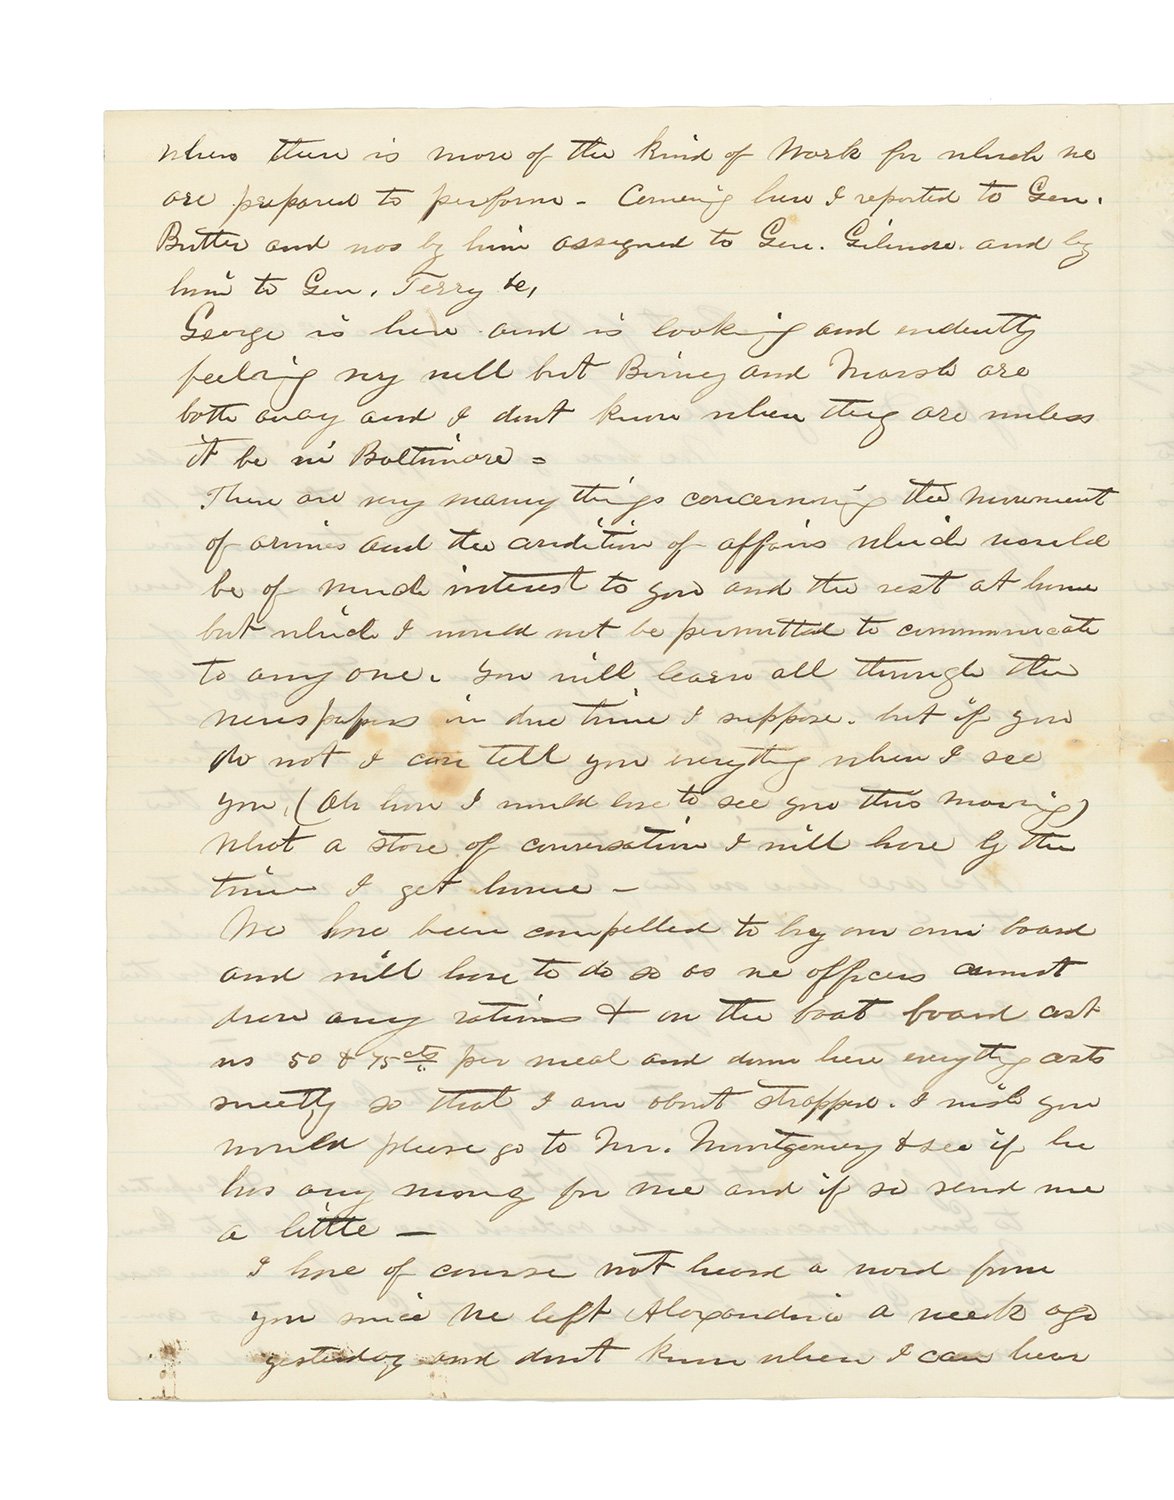 where there is more of the kind of Work for which we
are prepared to perform - Coming here I reported to Gen.
Butler and was by him assigned to Gen. Gilmore. and by
him to Gen. Terry &c,
George is here and is looking and evidently
feeling very well but Birney and Marsh are
both away and I dont know where they are unless
it be in Baltimore =
There are very many things concerning the movement
of armies and the condition of affairs which would
be of much interest to you and the rest at home
but which I would not be permitted to communicate
to any one. You will learn all through the
newspapers in due time I suppose. but if you
do not I can tell you everything when I see
you, (Oh how I would love to see you this morning)
What a store of conversation I will have by the
time I get home -
We have been compelled to buy our own board
and will have to do so as we officers cannot
draw any rations & on the boat board cost
us 50 & 75 cts per meal and down here everything costs
sweetly so that I am about strapped. I wish you
would please go to Mr. Montgomery & see if he
has any money for me and if so send me
a little —
I have of course not heard a word from
you since we left Alexandria a week ago
yesterday and dont know when I can hear